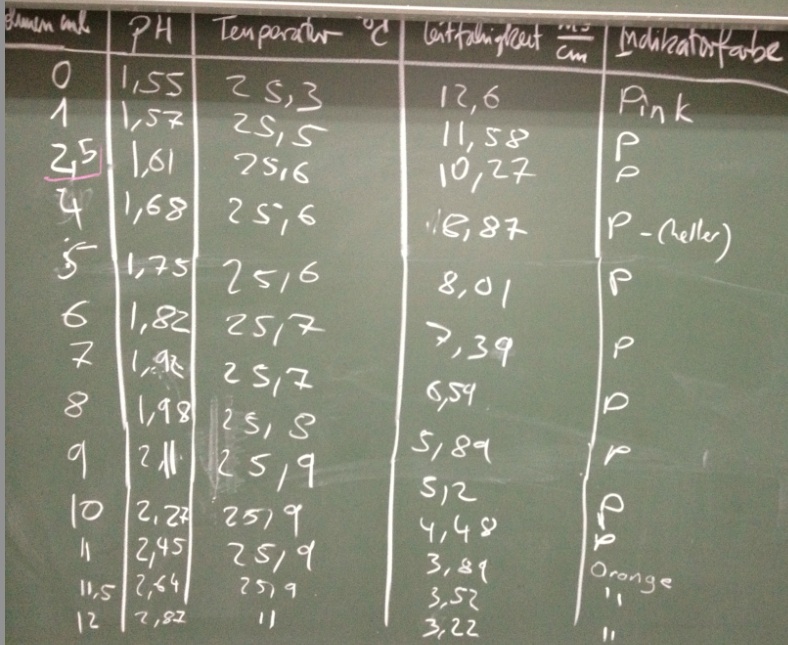 Volumen ml PH Temperatur °C Leitfähigkeit ms/cm Indikatorfarbe
0 1,55 25,3 12,6 Pink
1 1,57 25,5 11,58 P
2,5 1,61 25,6 10,27 P
4 1,68 25,6 8,87 P - (heller)
5 1,75 25,6 8,01 P
6 1,82 25,7 7,39 P
7 25,7 6,59 P
8 1,98 25,8 5,89 P
9 2,11 25,9 5,2 P
10 2,27 25,9 4,48 P
11 2,45 25,9 3,89 Orange
11,5 2,64 25,9 3,52 "
12 2,87 " 3,22 "